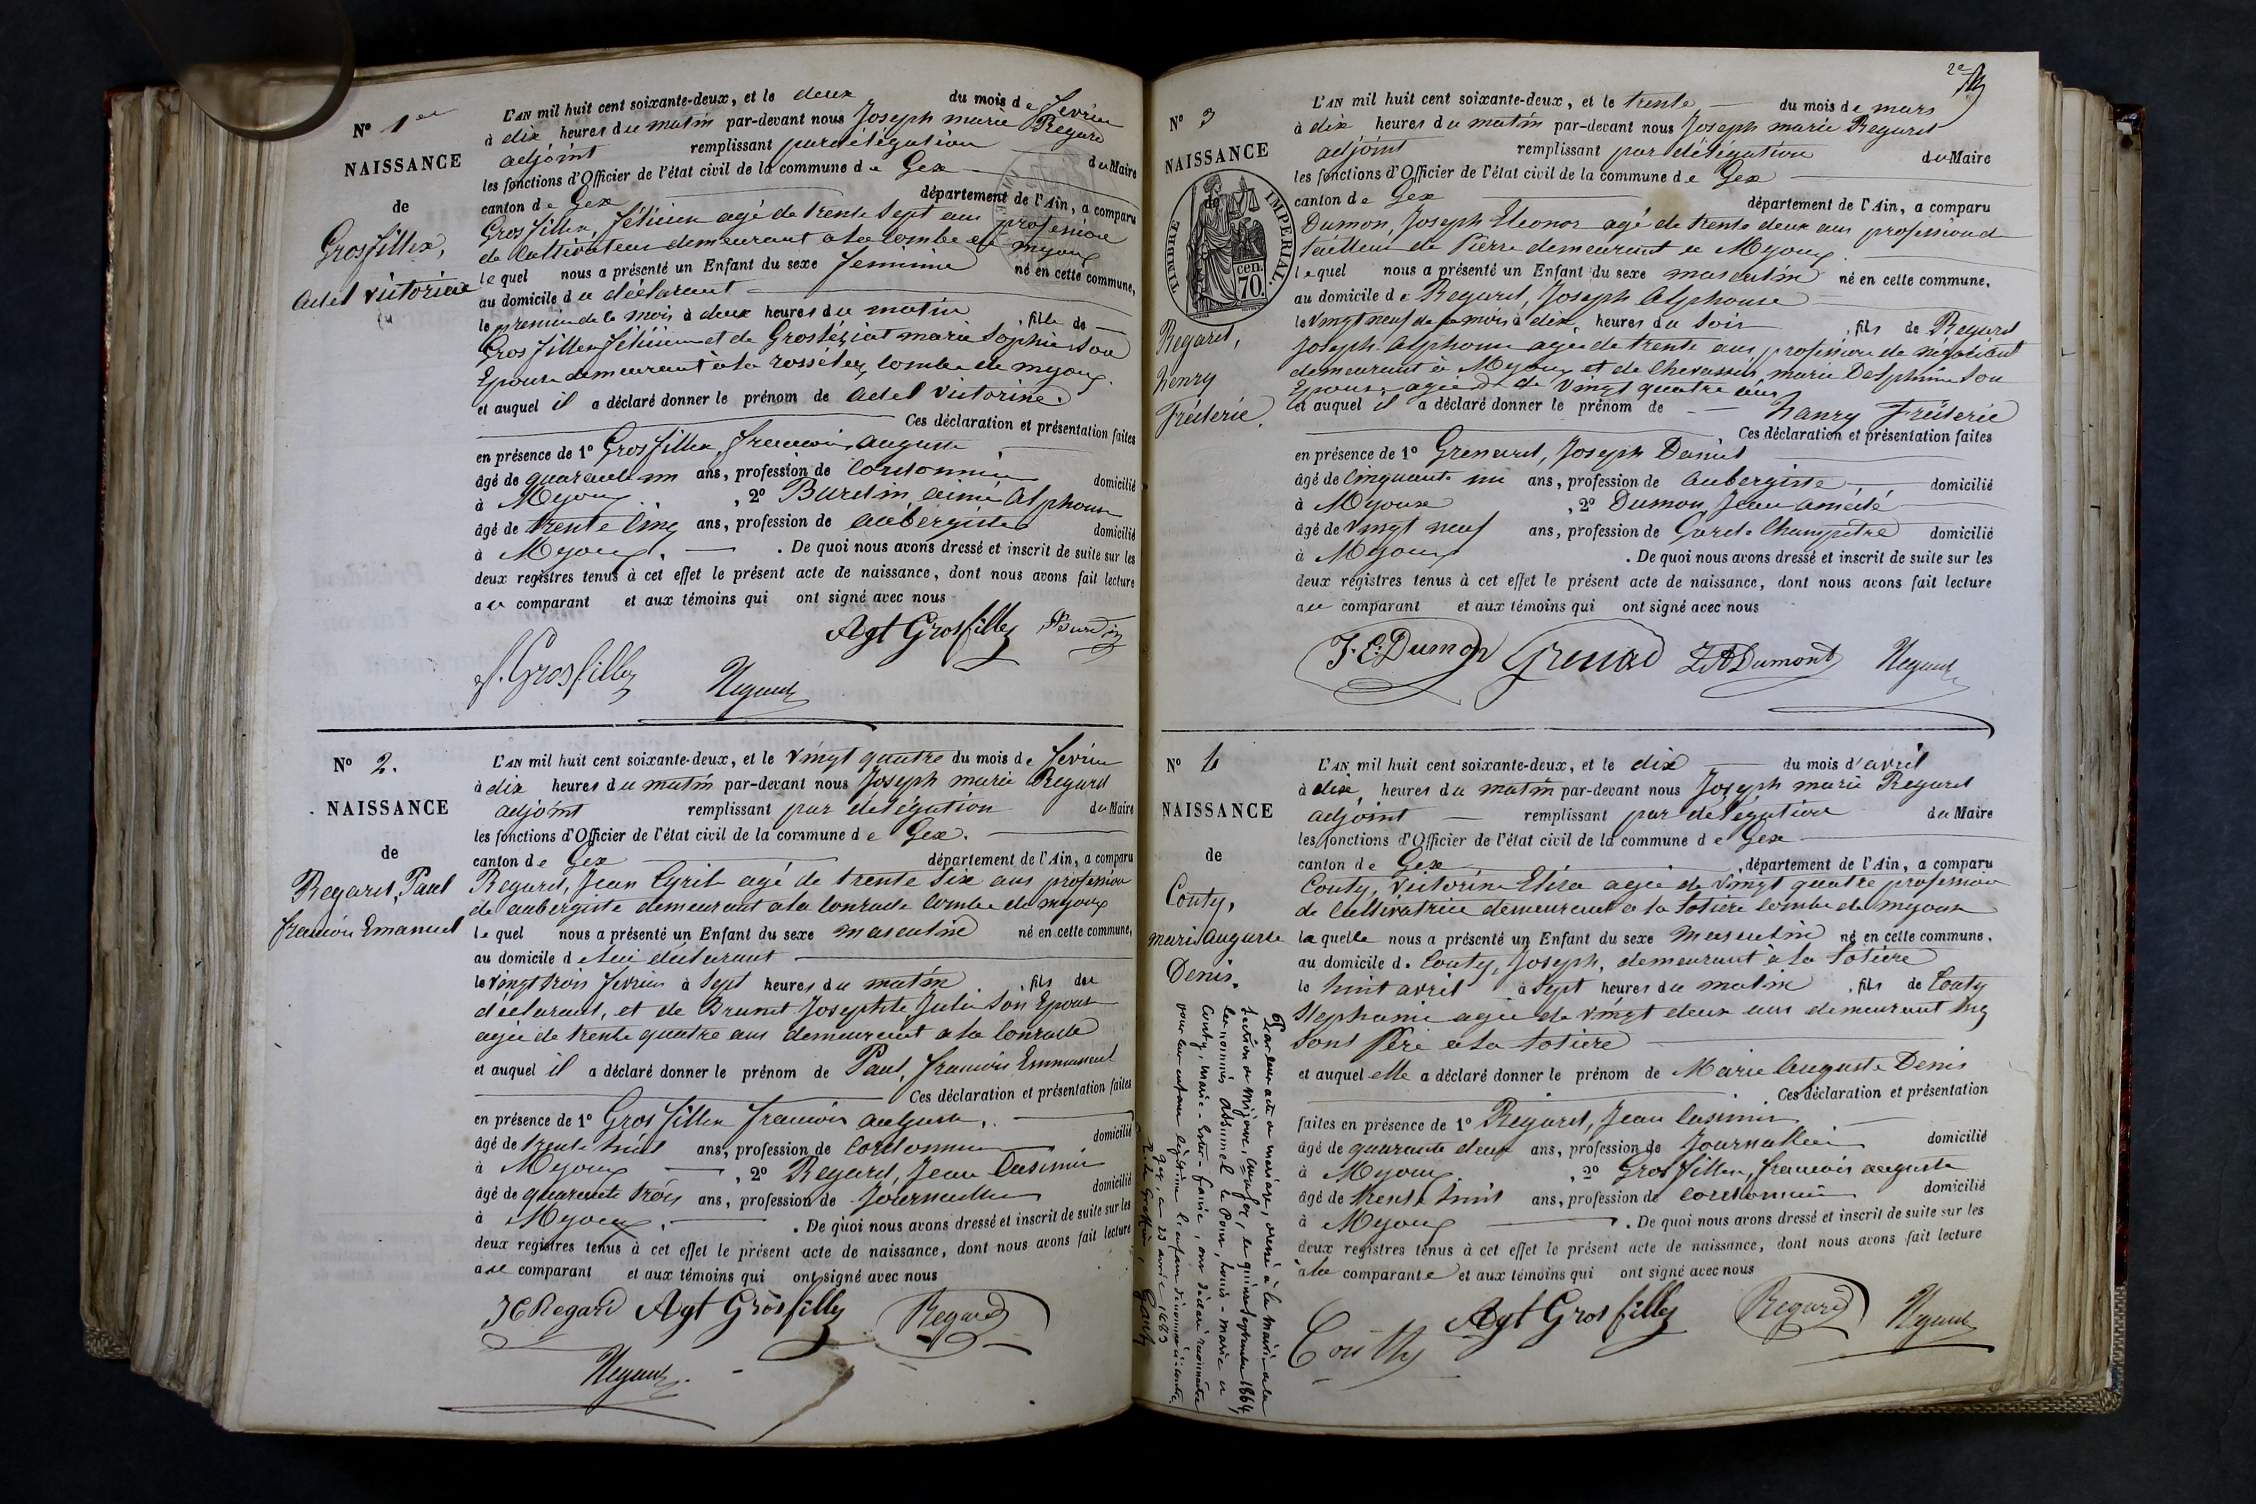 Nº 1er
NAISSANCE
de
Grosfillex,
Adel victorine
L'AN mil huit cent soixante-deux, et le deux du mois de fevrier
à dix heures du matin par-devant nous Joseph marie Regard
adjoint remplissant par délégation du Maire
les fonctions d'Officier de l'état civil de la commune de Gex
canton de Gex département de l'Ain, a comparu
Gros fillex, félicien agé de trente sept ans profession
de Cultivateur demeurant a la combe de myoux
lequel nous a présenté un Enfant du sexe feminine né en cette commune,
au domicile du déclarant
le premier de ce mois à deux heures du matin, fille de
Gros fillex félicien et de Grosféziat marie Sophie Son
Epouse demeurant à la combe de myoux.
et auquel il a déclaré donner le prénom de Adel Victorine.
Ces déclaration et présentation faites
en présence de 1º Gros fillex, francois auguste
âgé de quarante un ans, profession de Cordonnier domicilié
à Myoux, 2º Burdin aimé Alphonse
âgé de trente cinq ans, profession de aubergiste domicilié
à Myoux. De quoi nous avons dressé et inscrit de suite sur les
deux registres tenus à cet effet le présent acte de naissance, dont nous avons fait lecture
au comparant et aux témoins qui ont signé avec nous
Agt Grosfilley Burdin
f. Grosfilley Regard
Nº 2.
NAISSANCE
de
Regard, Paul
francois Emanuel
L'AN mil huit cent soixante-deux, et le vingt quatre du mois de fevrier
à dix heures du matin par-devant nous Joseph marie Regard
adjoint remplissant par délégation du Maire
les fonctions d'Officier de l'état civil de la commune de Gex.
canton de Gex département de l'Ain, a comparu
Regard, Jean Cyril agé de trente six ans profession
de aubergiste demeurant a la combe de myoux
lequel nous a présenté un Enfant du sexe masculin né en cette commune,
au domicile de lui déclarant
le vingt trois fevrier à Sept heures du matin, fils du
déclarant, et de Brunet Josephte Julie Son Epouse
agée de trente quatre ans demeurant a la
et auquel il a déclaré donner le prénom de Paul, francois Emmanuel
Ces déclaration et présentation faites
en présence de 1º Gros fillex francois auguste.
âgé de trente huit ans, profession de cordonnier domicilié
à Myoux, 2º Regard, Jean Casimir
âgé de quarante trois ans, profession de Journallier domicilié
à Myoux. De quoi nous avons dressé et inscrit de suite sur les
deux registres tenus à cet effet le présent acte de naissance, dont nous avons fait lecture
au comparant et aux témoins qui ont signé avec nous
JC Regard Agt Grosfilley Regard
Regard
2e
Nº 3
NAISSANCE
de
TIMBRE IMPERIAL.
cen.
70.
Regard,
henry
Fréderic.
L'AN mil huit cent soixante-deux, et le trente du mois de mars
à dix heures du matin par-devant nous Joseph marie Regard
adjoint remplissant par délégation du Maire
les fonctions d'Officier de l'état civil de la commune de Gex
canton de Gex département de l'Ain, a comparu
Dumon, Joseph Eleonor agé de trente deux ans profession de
tailleur de Pierre demeurant a Myoux.
lequel nous a présenté un Enfant du sexe masculin né en cette commune,
au domicile de Regard, Joseph Alphonse
le vingt neuf de ce mois à dix heures du Soir, fils de Regard
Joseph-Alphonse agée de trente ans, profession de négociant
demeurant à Myoux et de Chevassus marie Delphine Son
Epouse, agée de vingt quatre ans
et auquel il a déclaré donner le prénom de hanry Fréderic
Ces déclaration et présentation faites
en présence de 1º Grenard, Joseph Daniel
âgé de cinquante un ans, profession de Aubergiste domicilié
à Myoux, 2º Dumon, Jean amédé
âgé de vingt neuf ans, profession de Garde Champetre domicilié
à Myoux. De quoi nous avons dressé et inscrit de suite sur les
deux registres tenus à cet effet le présent acte de naissance, dont nous avons fait lecture
au comparant et aux témoins qui ont signé avec nous
J. E. Dumon Grenard J A Dumont Regard
Nº 4
NAISSANCE
de
Couty,
marie Auguste
Denis.
L'AN mil huit cent soixante-deux, et le dix du mois d'avril
à dix heures du matin par-devant nous Joseph marie Regard
adjoint remplissant par délégation du Maire
les fonctions d'Officier de l'état civil de la commune de Gex
canton de Gex, département de l'Ain, a comparu
Couty, Victorine Eliza agée de vingt quatre profession
de Cultivatrice demeurant a la Sotiere combe de myoux
laquelle nous a présenté un Enfant du sexe masculin né en cette commune,
au domicile de Couty, Joseph, demeurant à la Sotiere
le huit avril à Sept heures du matin, fils de Couty
Stephanie agée de vingt deux ans demeurant chez
Sont Père a la Sotiere
et auquel elle a déclaré donner le prénom de Marie Auguste Denis
Ces déclaration et présentation
faites en présence de 1º Regard, Jean Casimir
âgé de quarante deux ans, profession de Journallier domicilié
à Myoux, 2º Gros fillex, francois auguste
âgé de trente huit ans, profession de cordonnier domicilié
à Myoux. De quoi nous avons dressé et inscrit de suite sur les
deux registres tenus à cet effet le présent acte de naissance, dont nous avons fait lecture
à la comparante et aux témoins qui ont signé avec nous
Couthy Agt Grosfilley Regard Regard
Par leur acte de mariage, dressé à la mairie de la
Section de Mijoux, le quinze Septembre 1864,
les nommés Abimel le Poux, Louis-Marie et
Couty, Marie-Fanie, ont déclaré reconnaître
pour leur enfant légitime l'enfant dénommé ci-contre
Gex, ce 23 avril 1883